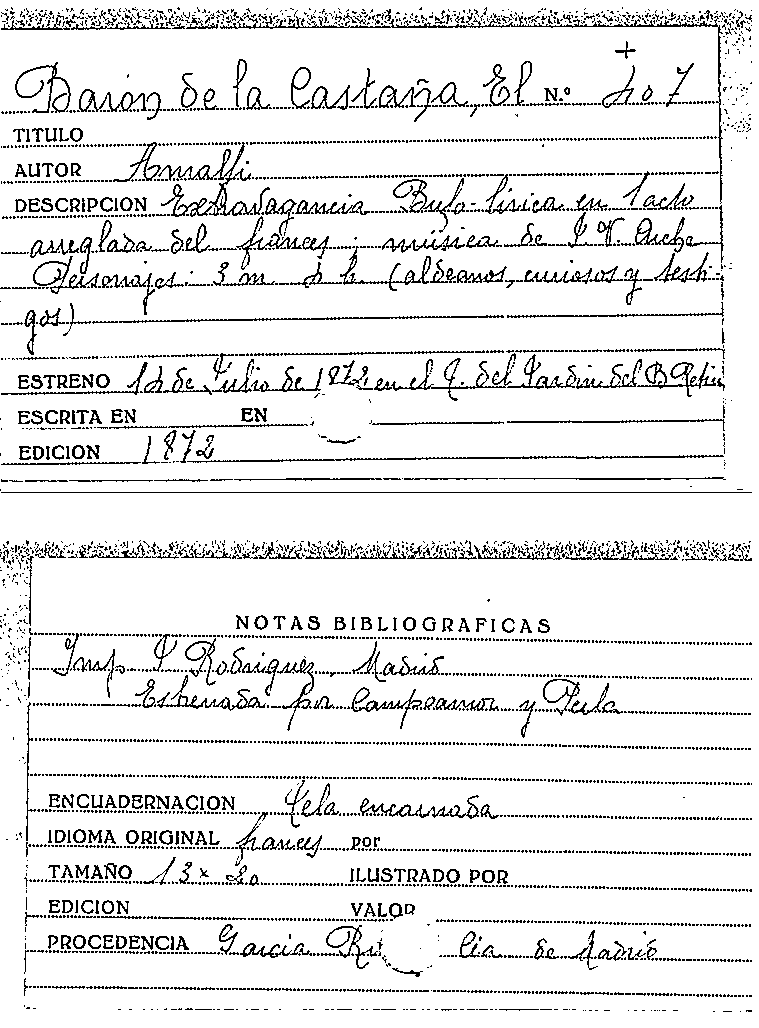 +
Barón de la Castaña, El N.º 207
TITULO
AUTOR Amalfi
DESCRIPCION Extravagancia Bufo-lírica en 1 acto
arreglada del frances; música de I. V. Arche
Personajes: 3 m. 2 h. (aldeanos, curiosos y testi-
gos)
ESTRENO 12 de Julio de 1872 en el T. del Jardin del B Retiro
ESCRITA EN EN
EDICION 1872
NOTAS BIBLIOGRAFICAS
Imp. I Rodriguez, Madrid
Estrenada por Campoamor y Tula
ENCUADERNACION Tela encarnada
IDIOMA ORIGINAL frances por
TAMAÑO 13 x 20 ILUSTRADO POR
EDICION VALOR
PROCEDENCIA Garcia de Madrid